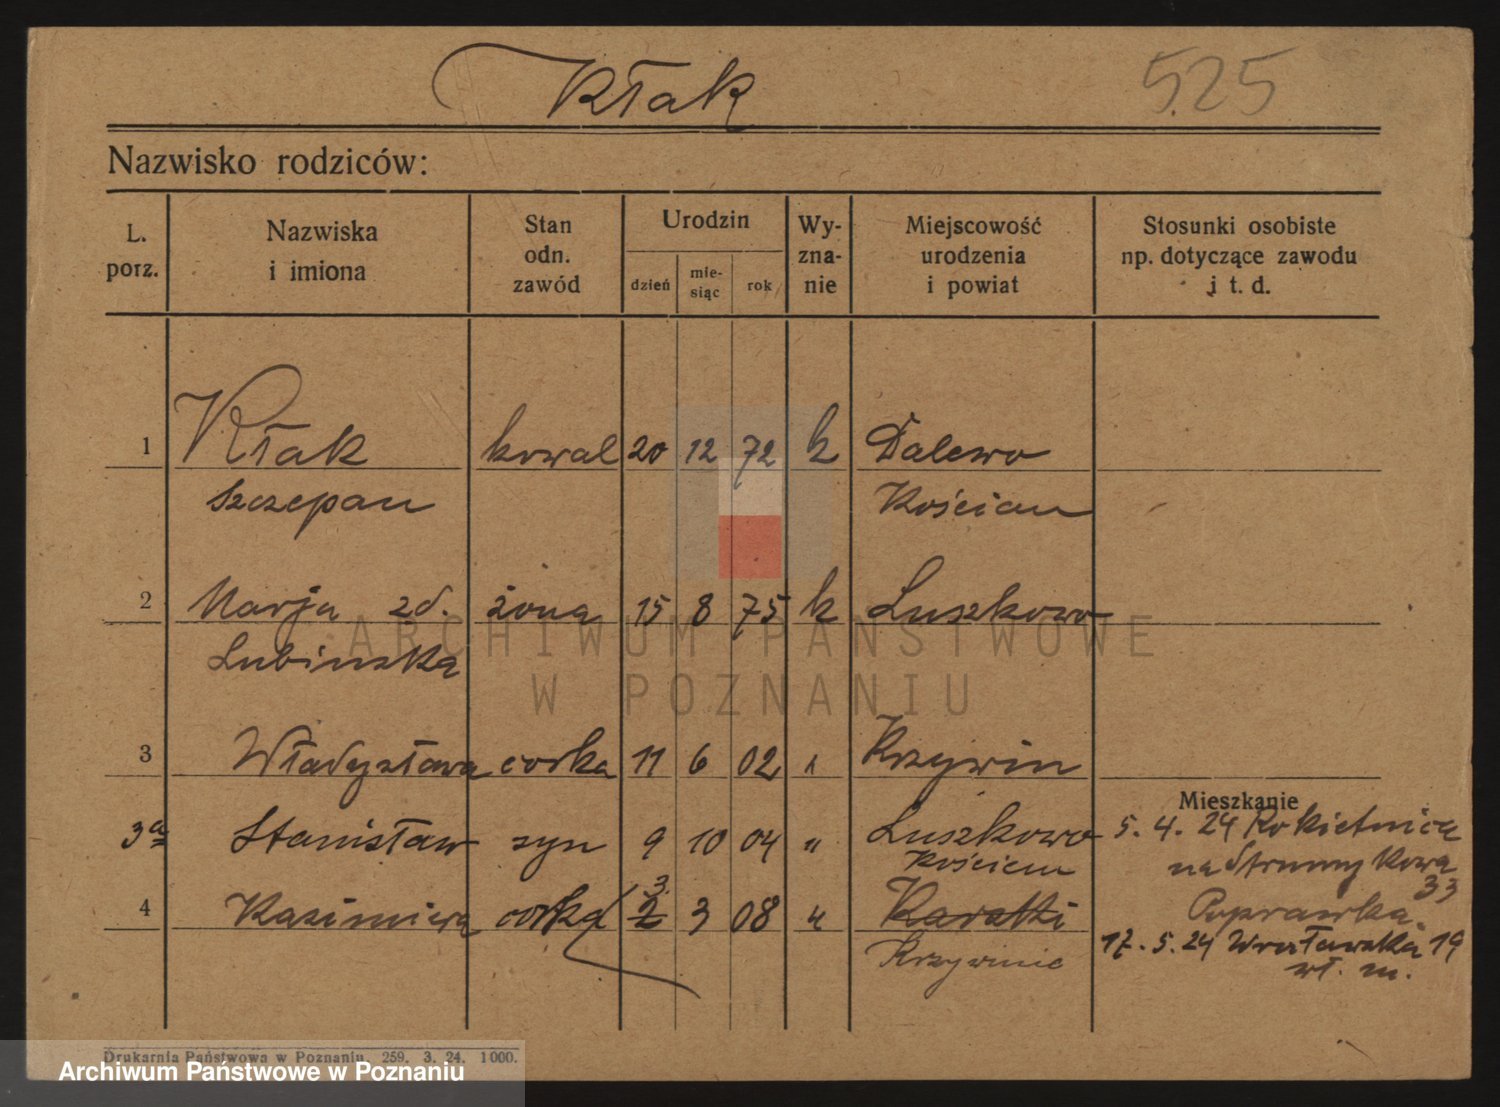 Kłak
525
Nazwisko rodziców:
L. porz.
Nazwiska i imiona
Stan odn. zawód
Urodzin
dzień
mie-siąc
rok
Wy-zna-nie
Miejscowość urodzenia i powiat
Stosunki osobiste np. dotyczące zawodu i t. d.
1 Kłak kowal 20 12 72 k Dalewo
Szczepan Kościan
2 Marja zd. żona 15 8 75 k Luszkowo
Lubinska
3 Władysława corka 11 6 02 " Krzywin
Mieszkanie
3a Stanisław syn 9 10 04 " Luszkowo 5. 4. 24 Rokietnica
Kościan na Strumykowa
33
3.
4 Kazimiera corka 2 3 08 " Karatki Poprawka.
Krzywinie 17. 5. 24 Wrocławska 19
wł. m.
ARCHIWUM PAŃSTWOWE
W POZNANIU
Drukarnia Państwowa w Poznaniu. 259. 3. 24. 1000.
Archiwum Państwowe w Poznaniu